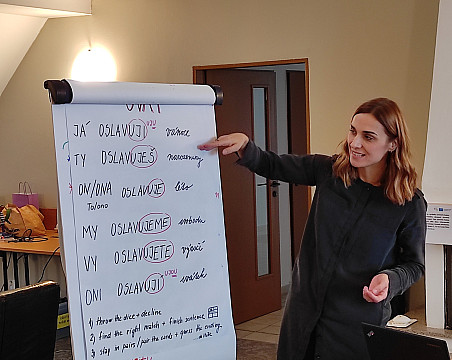 JÁ OSLAVUJI UJU vánoce
TY OSLAVUJEŠ narozeniny
ON/ONA OSLAVUJE léto
To/ono
MY OSLAVUJEME svobodu
VY OSLAVUJETE výročí
ONI OSLAVUJÍ UJOU svátek
1) throw the dice + decline
2) find the right match + finish sentence
3) stay in pairs / put the cards + guess the ending